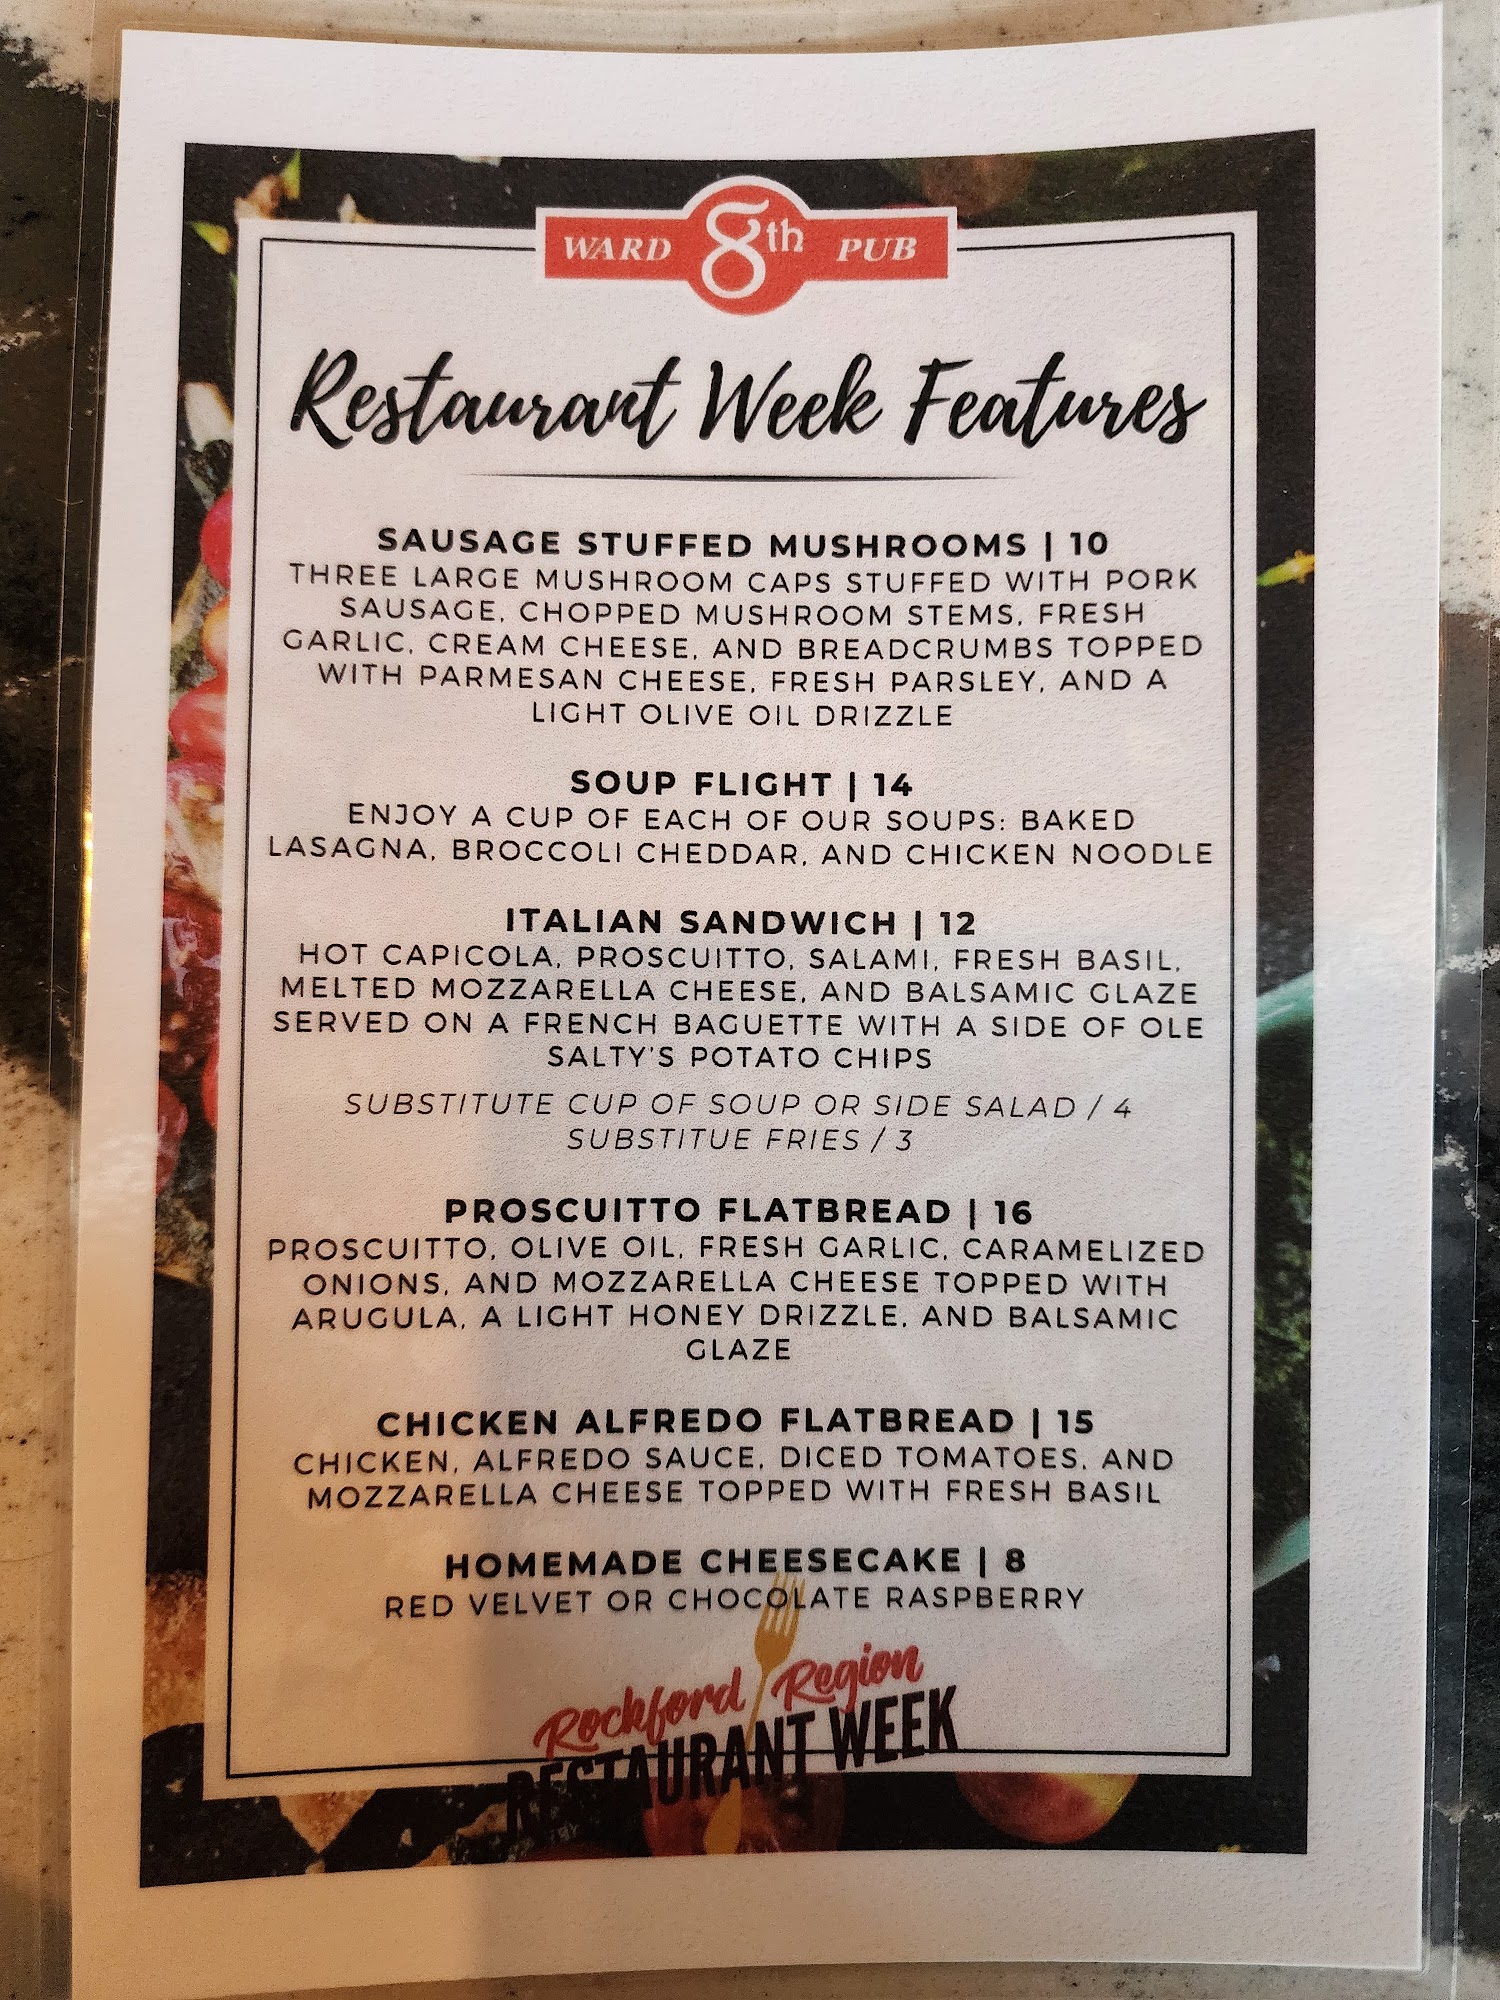 WARD 8th PUB
Restaurant Week Features
SAUSAGE STUFFED MUSHROOMS | 10
THREE LARGE MUSHROOM CAPS STUFFED WITH PORK
SAUSAGE, CHOPPED MUSHROOM STEMS, FRESH
GARLIC, CREAM CHEESE, AND BREADCRUMBS TOPPED
WITH PARMESAN CHEESE, FRESH PARSLEY, AND A
LIGHT OLIVE OIL DRIZZLE
SOUP FLIGHT | 14
ENJOY A CUP OF EACH OF OUR SOUPS: BAKED
LASAGNA, BROCCOLI CHEDDAR, AND CHICKEN NOODLE
ITALIAN SANDWICH | 12
HOT CAPICOLA, PROSCUITTO, SALAMI, FRESH BASIL,
MELTED MOZZARELLA CHEESE, AND BALSAMIC GLAZE
SERVED ON A FRENCH BAGUETTE WITH A SIDE OF OLE
SALTY'S POTATO CHIPS
SUBSTITUTE CUP OF SOUP OR SIDE SALAD / 4
SUBSTITUE FRIES / 3
PROSCUITTO FLATBREAD | 16
PROSCUITTO, OLIVE OIL, FRESH GARLIC, CARAMELIZED
ONIONS, AND MOZZARELLA CHEESE TOPPED WITH
ARUGULA, A LIGHT HONEY DRIZZLE, AND BALSAMIC
GLAZE
CHICKEN ALFREDO FLATBREAD | 15
CHICKEN, ALFREDO SAUCE, DICED TOMATOES, AND
MOZZARELLA CHEESE TOPPED WITH FRESH BASIL
HOMEMADE CHEESECAKE | 8
RED VELVET OR CHOCOLATE RASPBERRY
Rockford Region
RESTAURANT WEEK